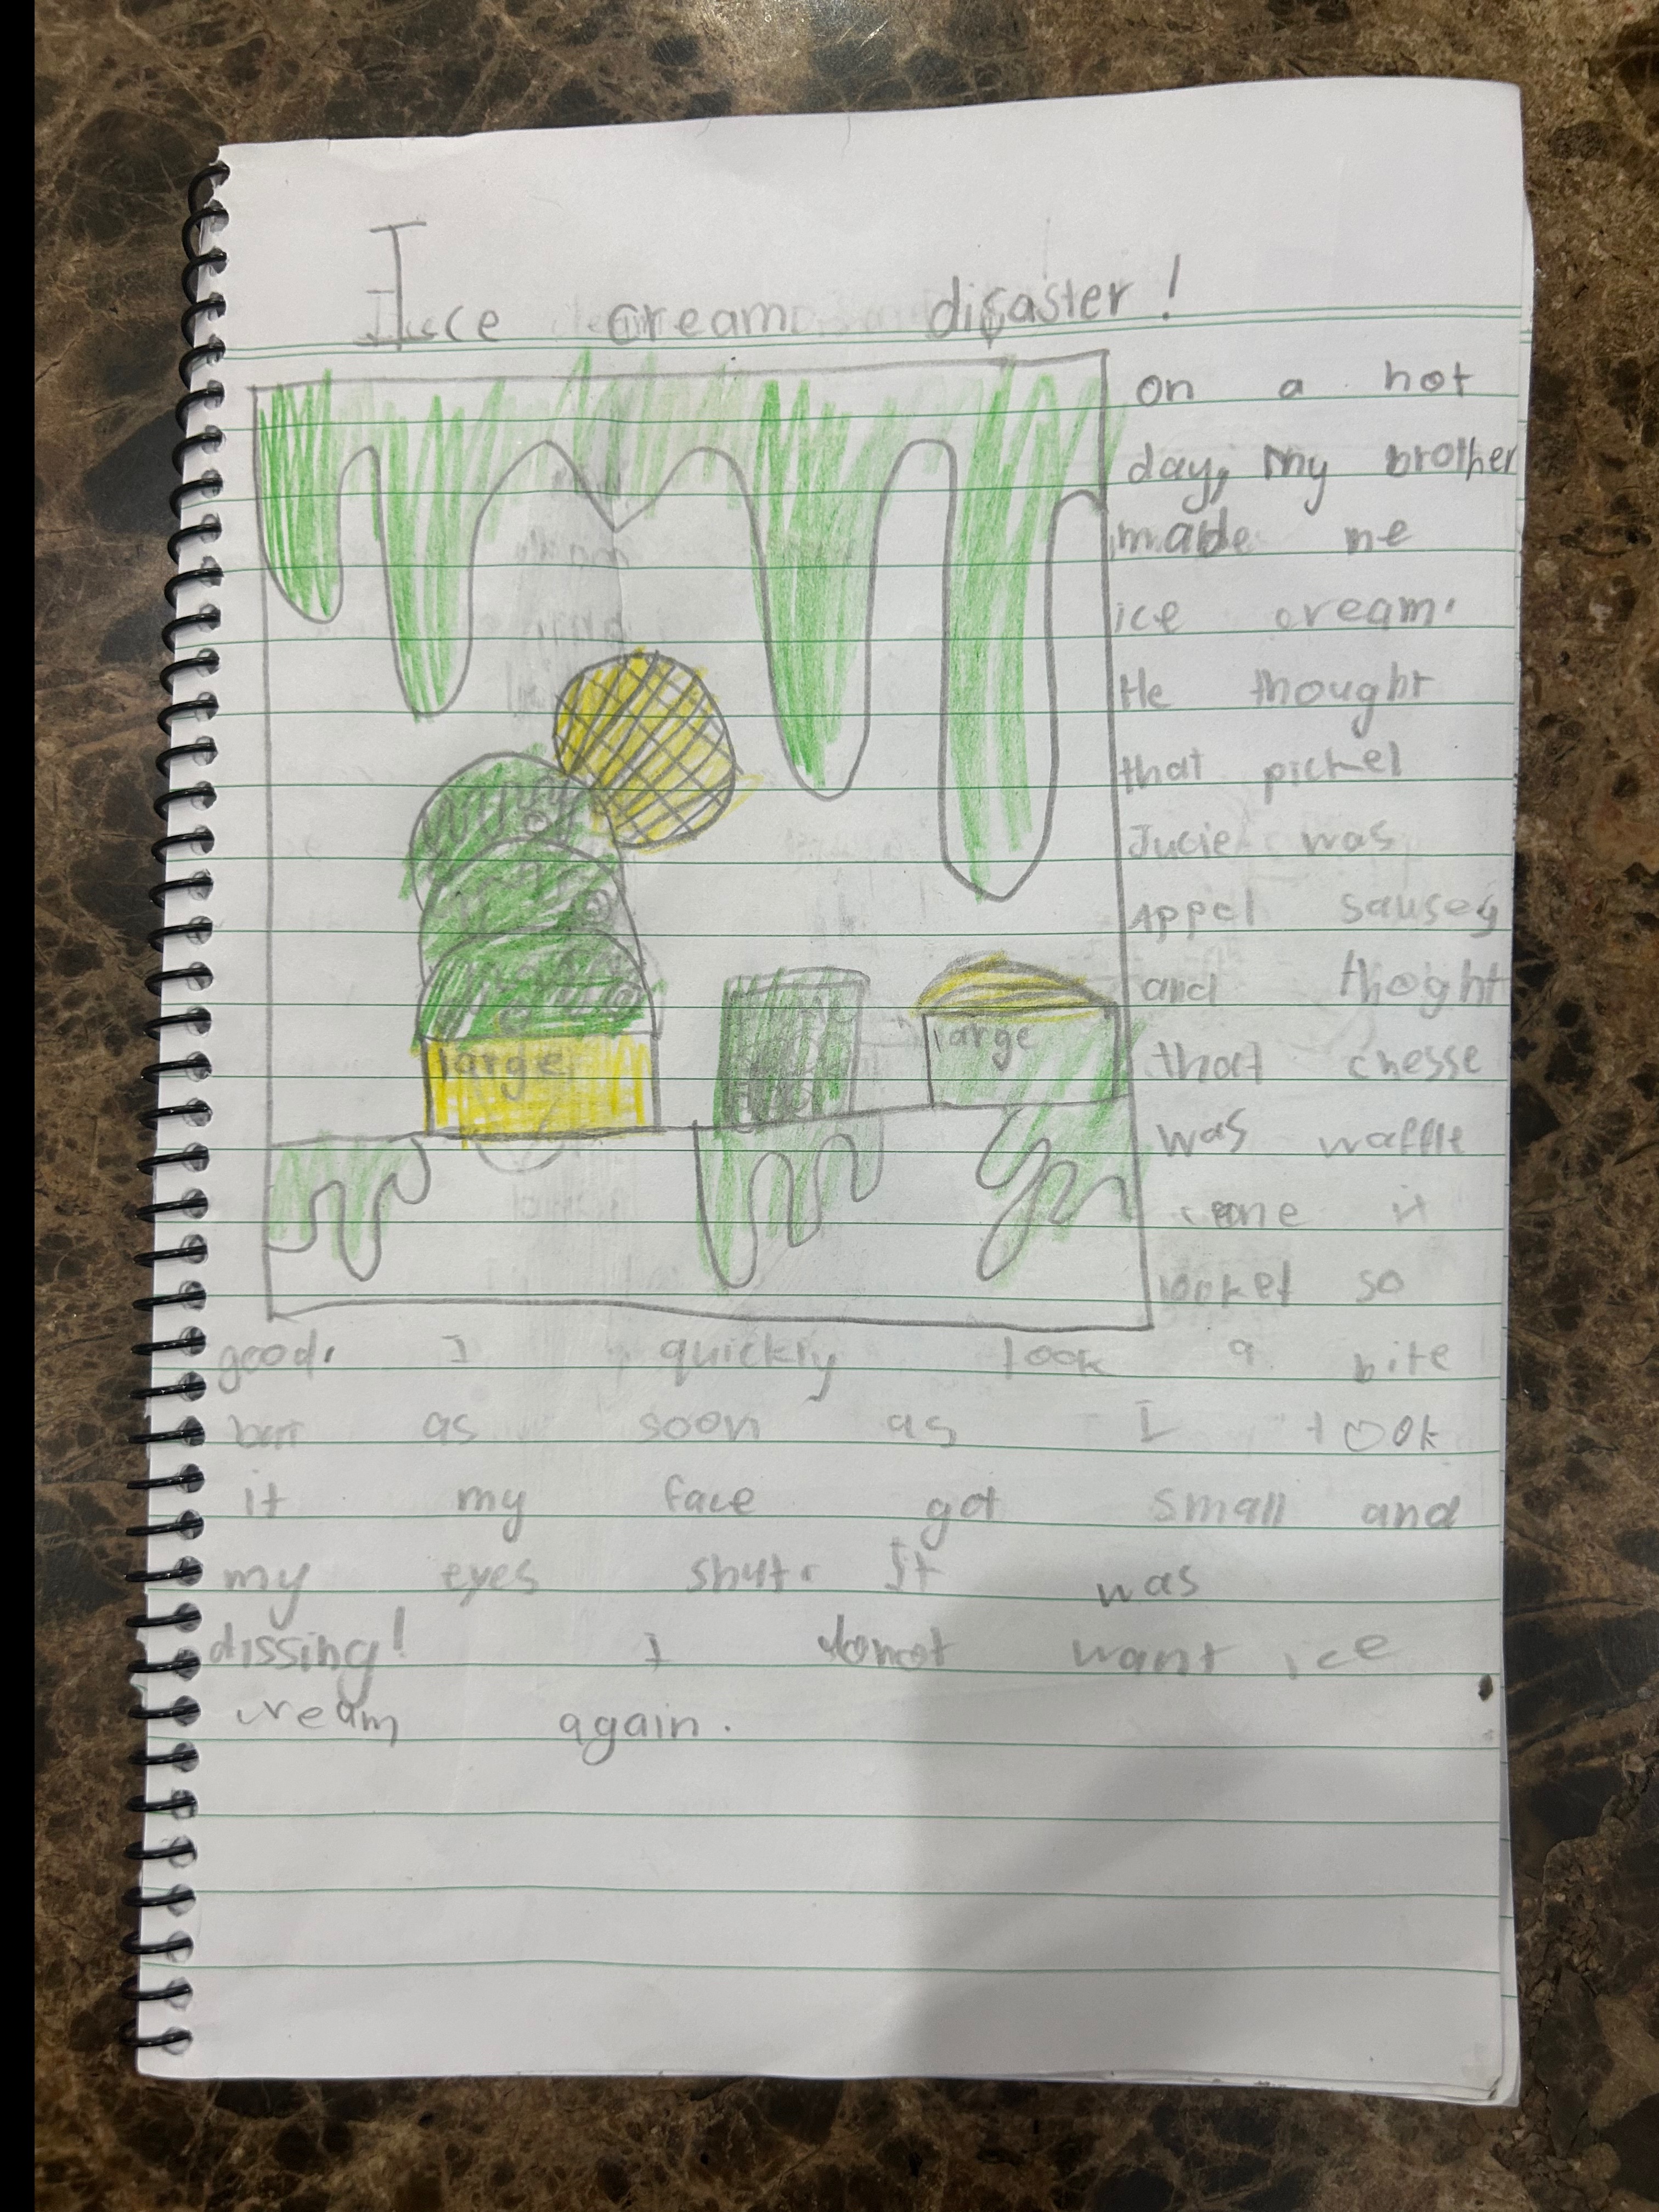 Ice cream disaster!
on a hot
day, my brother
made me
ice cream.
He thought
that pickel
Jucie was
Appel sausey
and thoght
that chesse
was waffle
cone it
looket so
large
large
good. I quickly took a bite
but as soon as I took
it my face got small and
my eyes shut. It was
dissing! I donot want ice
cream again.